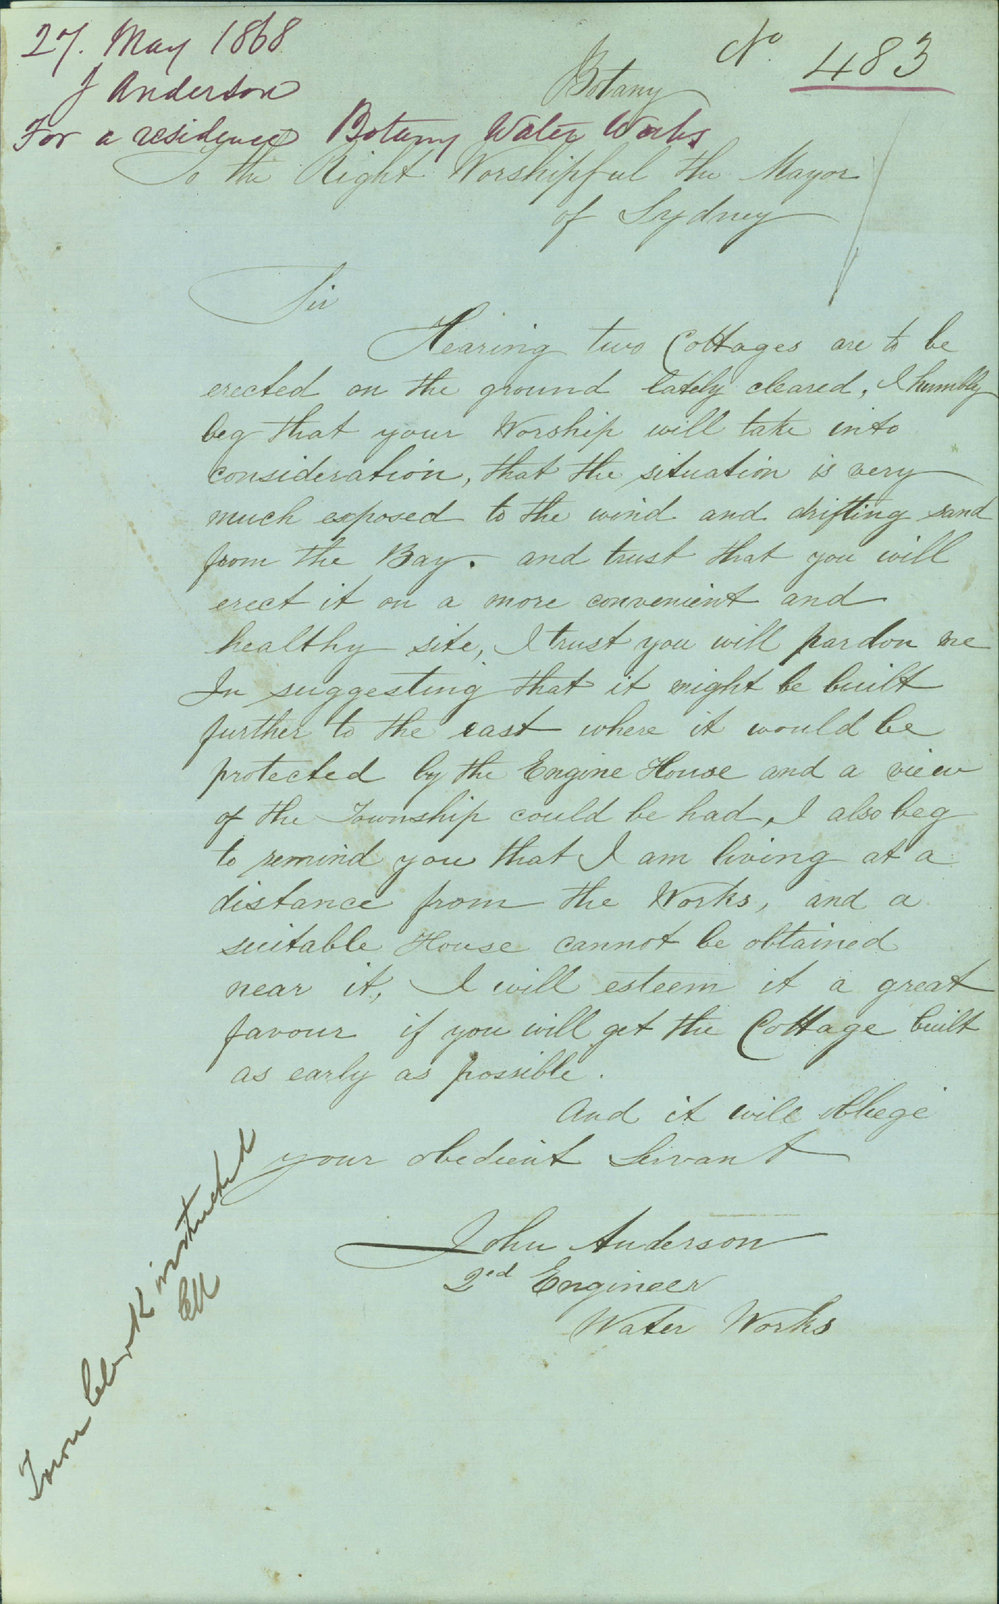 27. May 1868
J Anderson
For a residence Botany Water Works
No. 483
Botany
To the Right Worshipful the Mayor
of Sydney
Sir
Hearing two Cottages are to be
erected on the ground lately cleared, I humbly
beg that your Worship will take into
consideration, that the situation is very
much exposed to the wind and drifting sand
from the Bay. and trust that you will
erect it on a more convenient and
healthy site, I trust you will pardon me
In suggesting that it might be built
further to the east where it would be
protected by the Engine House and a view
of the Township could be had, I also beg
to remind you that I am living at a
distance from the Works, and a
suitable House cannot be obtained
near it, I will esteem it a great
favour if you will get the Cottage built
as early as possible.
And it will oblege
your obedient Servant
John Anderson
2ed Engineer
Water Works
Town Clerk instructed